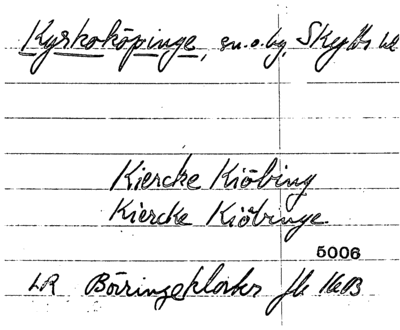 Kyrkoköpinge, sn.o.by, Skytts hd
Kiercke Kiöbing
Kiercke Kiöbinge
5006
LR Börringekloster Jb